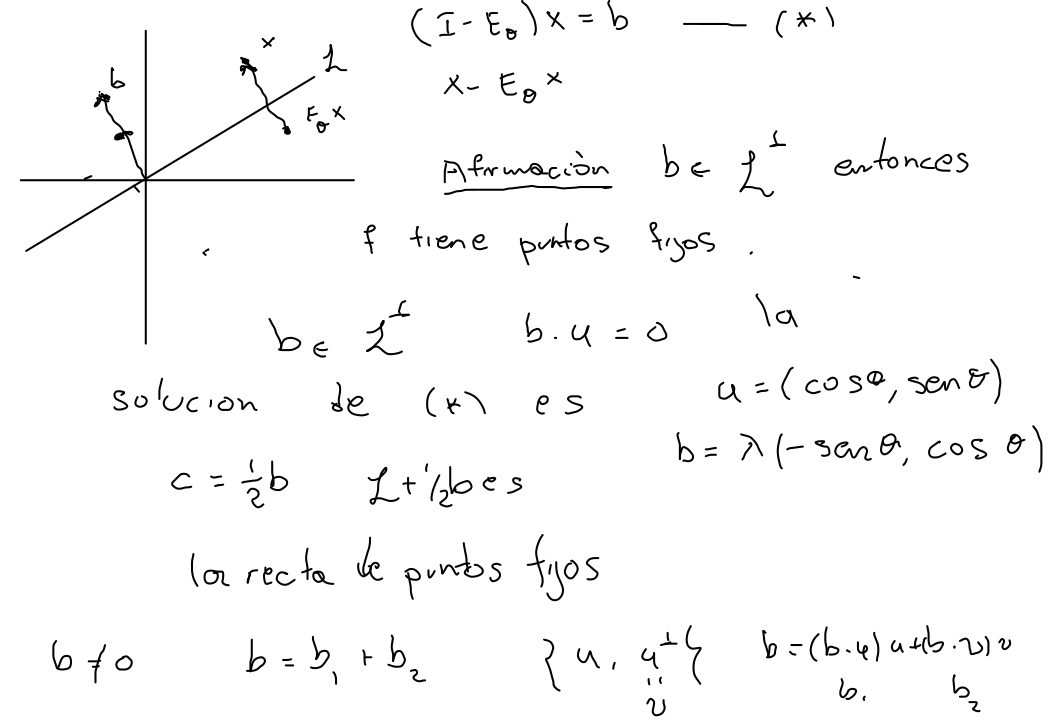 (I - E_θ) x = b —— (*)
x - E_θ x
b
x
L
E_θ x
Afrmación b ∈ L^⊥ entonces
f tiene puntos fijos.
b ∈ L^⊥ b . u = 0 la
solucion de (*) es
u = (cos θ, sen θ)
b = λ (-sen θ, cos θ)
c = 1/2 b L + 1/2 b es
la recta de puntos fijos
b ≠ 0 b = b₁ + b₂ { u, u^⊥ } b = (b.u) u + (b.v) v
" v b₁ b₂